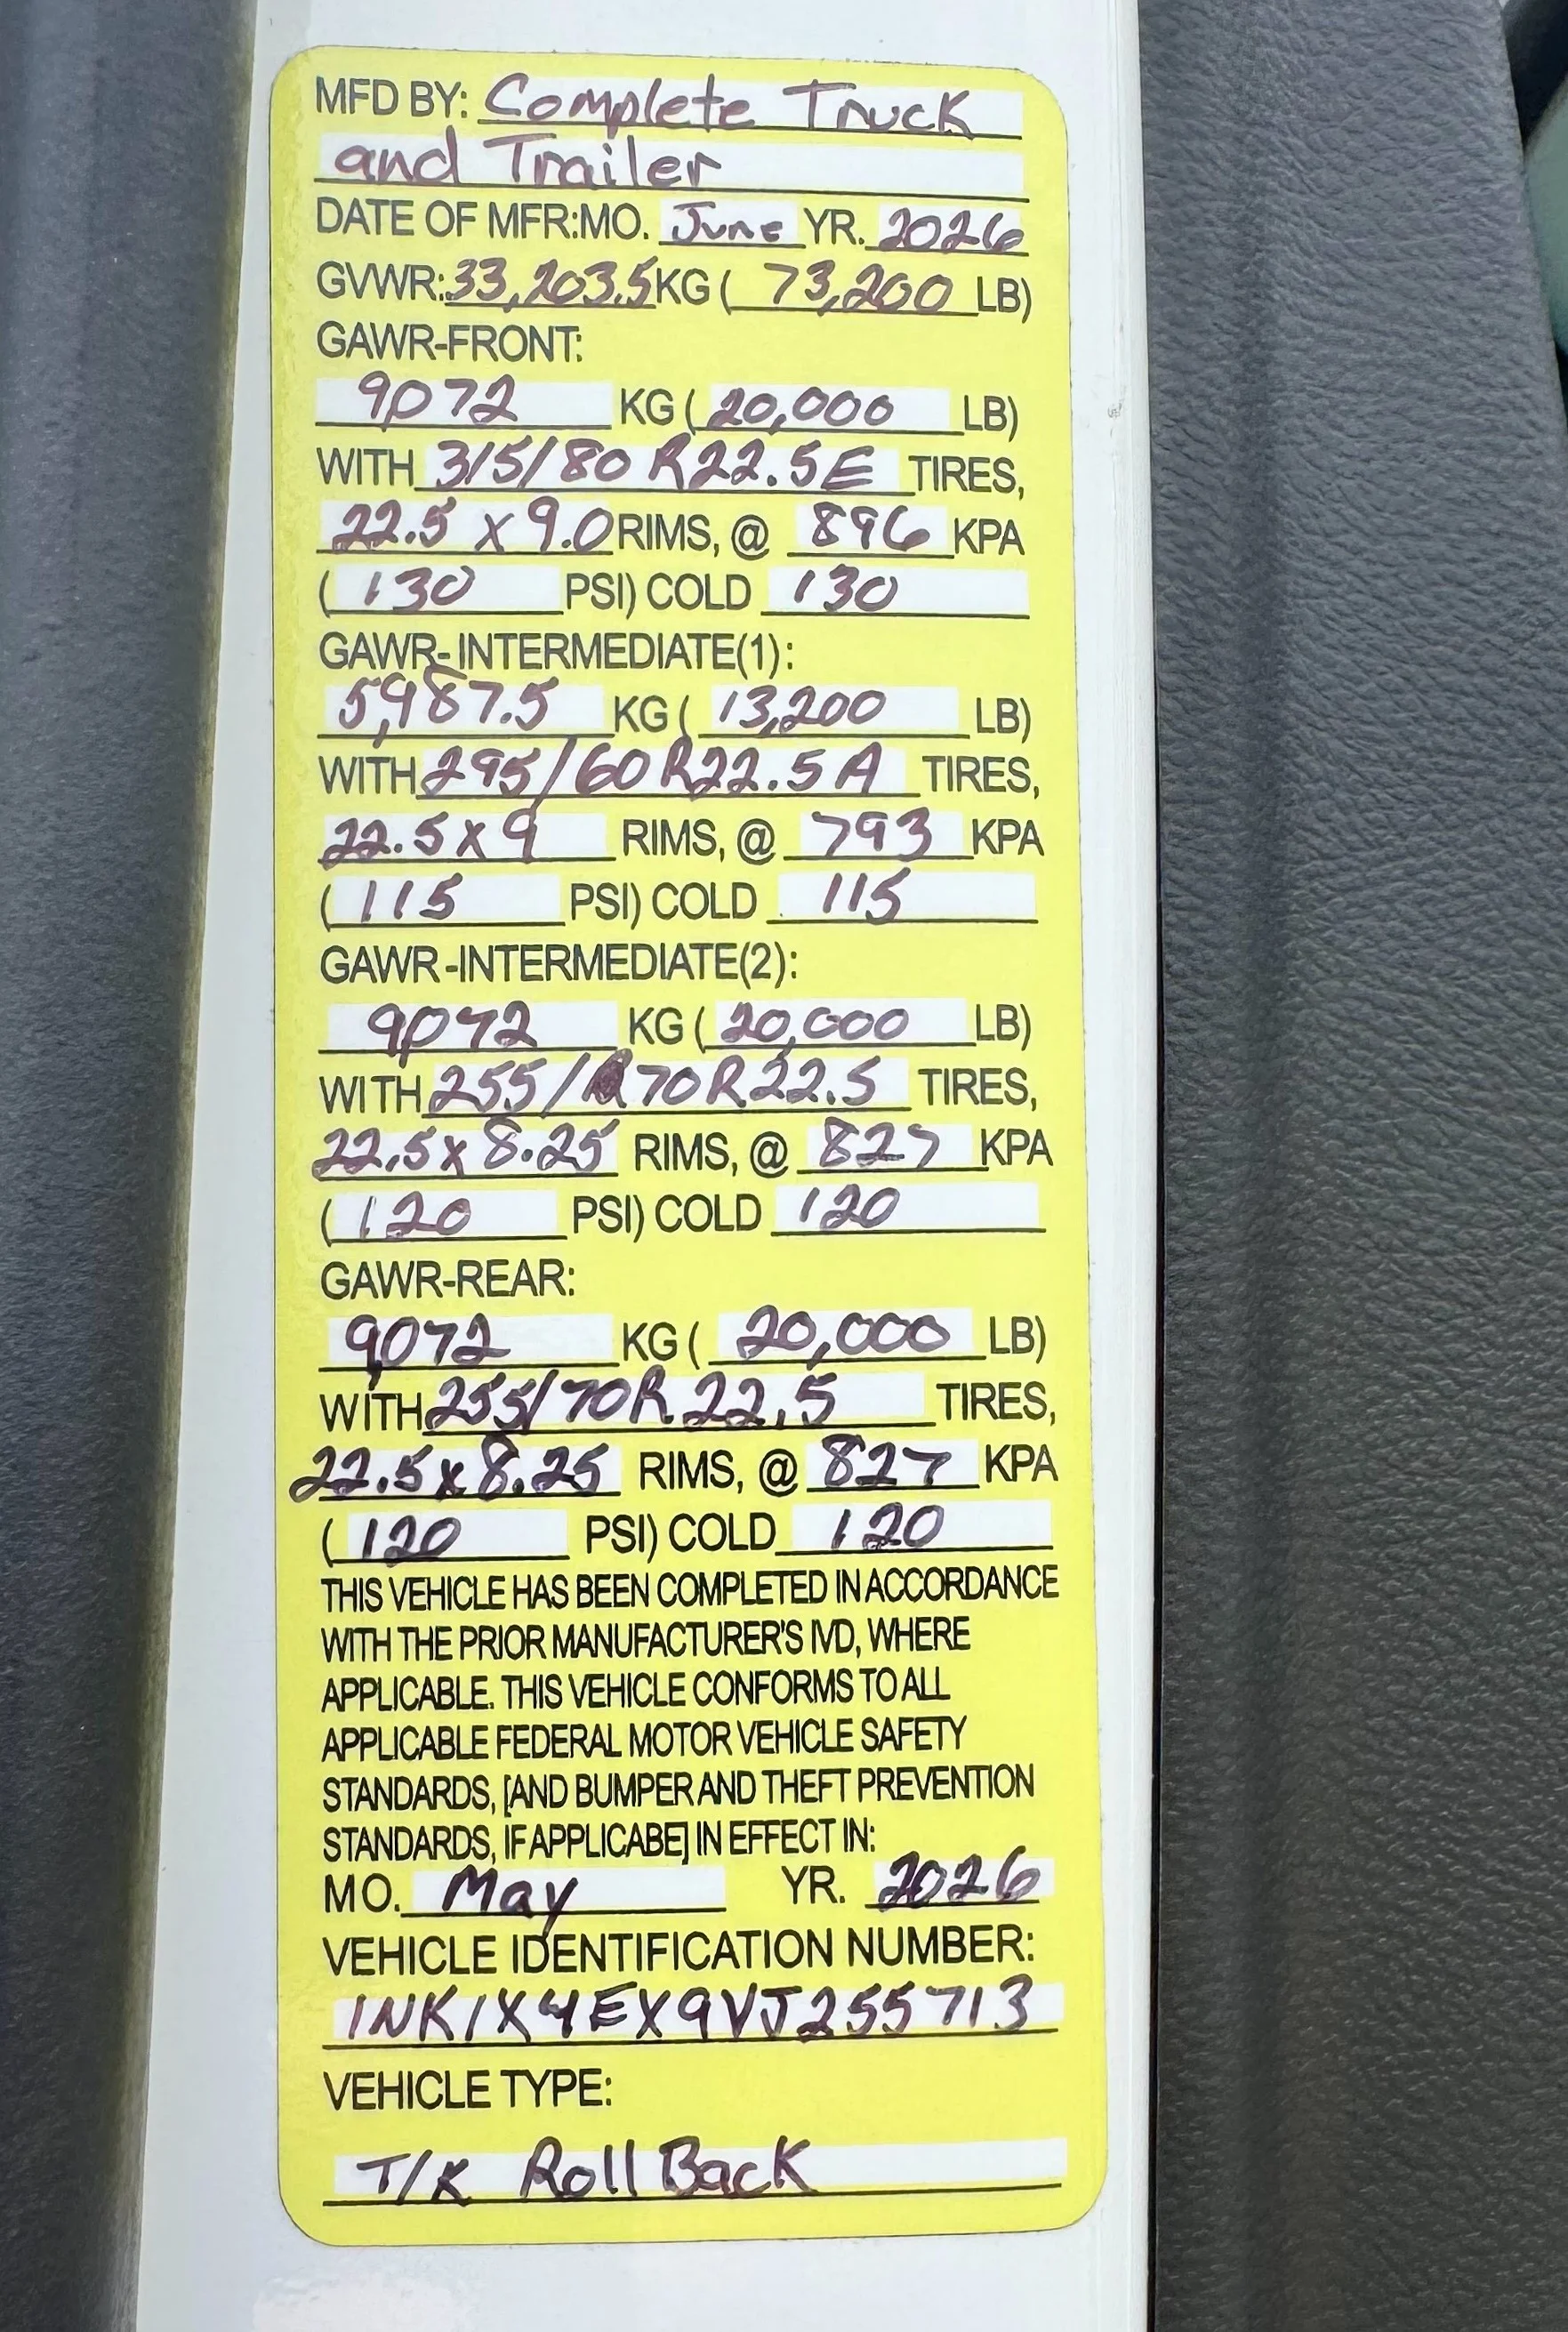 MFD BY: Complete Truck
and Trailer
DATE OF MFR:MO. June YR. 2026
GVWR: 33,203.5 KG ( 73,200 LB)
GAWR-FRONT:
9072 KG ( 20,000 LB)
WITH 315/80 R22.5E TIRES,
22.5 x 9.0 RIMS, @ 896 KPA
( 130 PSI) COLD 130
GAWR-INTERMEDIATE(1):
5,987.5 KG ( 13,200 LB)
WITH 295/60 R22.5 A TIRES,
22.5 x 9 RIMS, @ 793 KPA
( 115 PSI) COLD 115
GAWR-INTERMEDIATE(2):
9,072 KG ( 20,000 LB)
WITH 255/70R22.5 TIRES,
22.5 x 8.25 RIMS, @ 827 KPA
( 120 PSI) COLD 120
GAWR-REAR:
9,072 KG ( 20,000 LB)
WITH 255/70R 22.5 TIRES,
22.5 x 8.25 RIMS, @ 827 KPA
( 120 PSI) COLD 120
THIS VEHICLE HAS BEEN COMPLETED IN ACCORDANCE
WITH THE PRIOR MANUFACTURER'S IVD, WHERE
APPLICABLE. THIS VEHICLE CONFORMS TO ALL
APPLICABLE FEDERAL MOTOR VEHICLE SAFETY
STANDARDS, [AND BUMPER AND THEFT PREVENTION
STANDARDS, IF APPLICABE] IN EFFECT IN:
MO. May YR. 2026
VEHICLE IDENTIFICATION NUMBER:
1NK1X4EX9VJ255713
VEHICLE TYPE:
T/K Roll Back